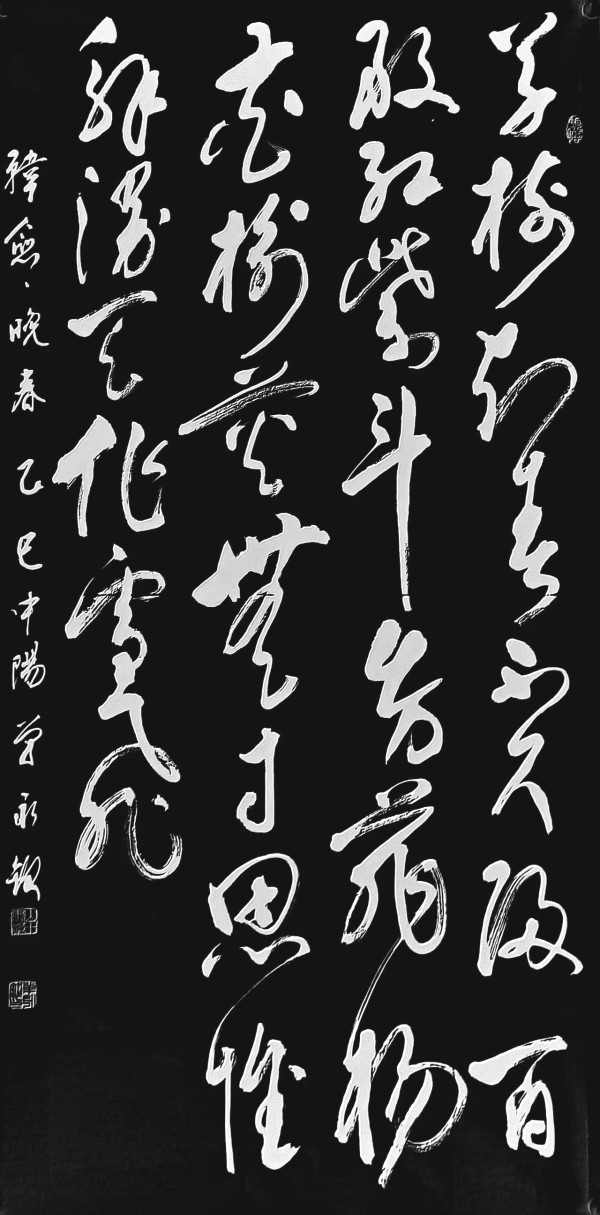 草樹知春不久歸百
般紅紫斗芳菲楊
花榆莢無才思惟
解漫天作雪飛
韓愈、晚春 乙巳中陽 永